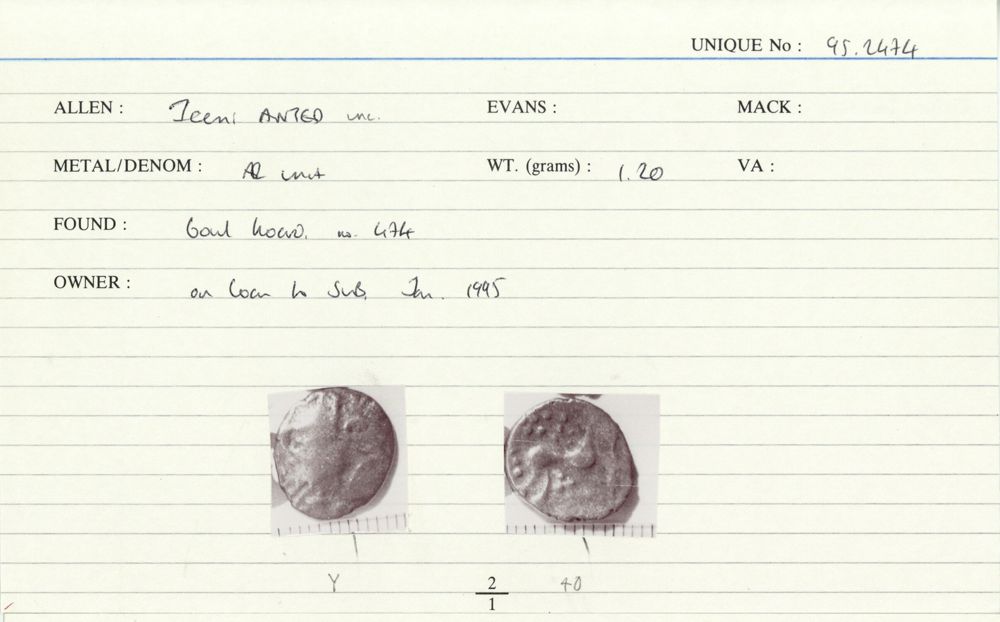 UNIQUE No : 95.2474
ALLEN : Iceni ANTED unc. EVANS : MACK :
METAL/DENOM : AR unit WT. (grams) : 1.20 VA :
FOUND : hoard. no. 474
OWNER : on loan to Jan. 1995
Y 2 40
1